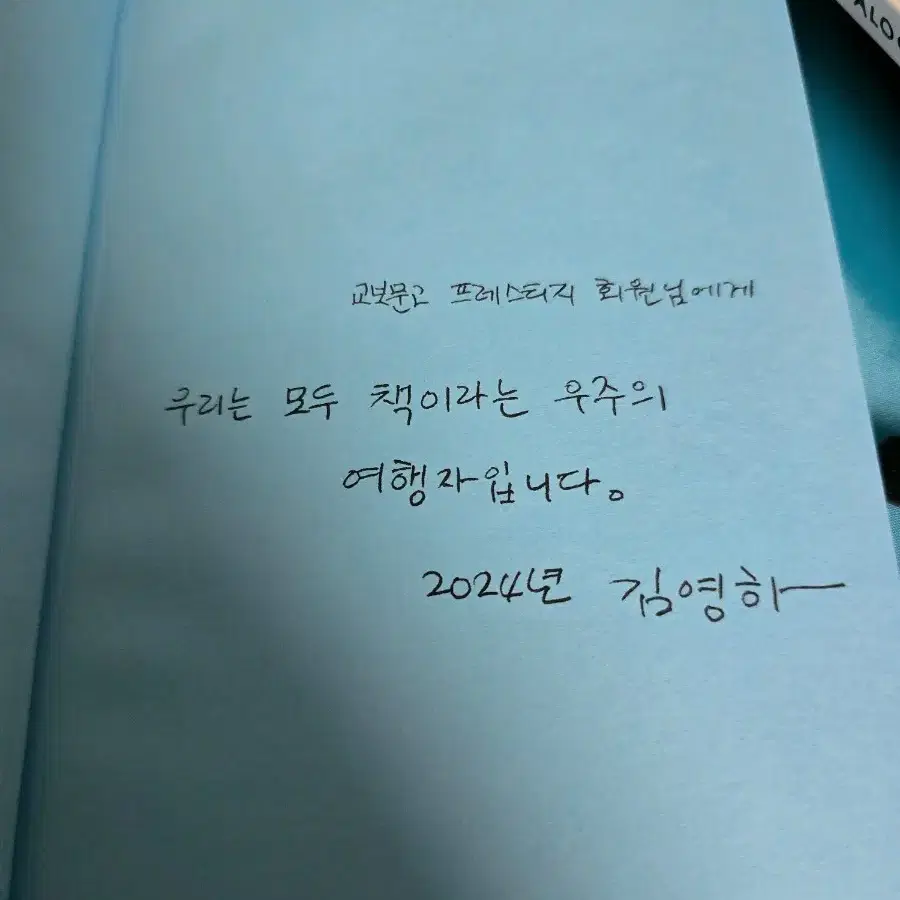 교보문고 프레스티지 회원님에게
우리는 모두 책이라는 우주의
여행자입니다.
2024년 김영하